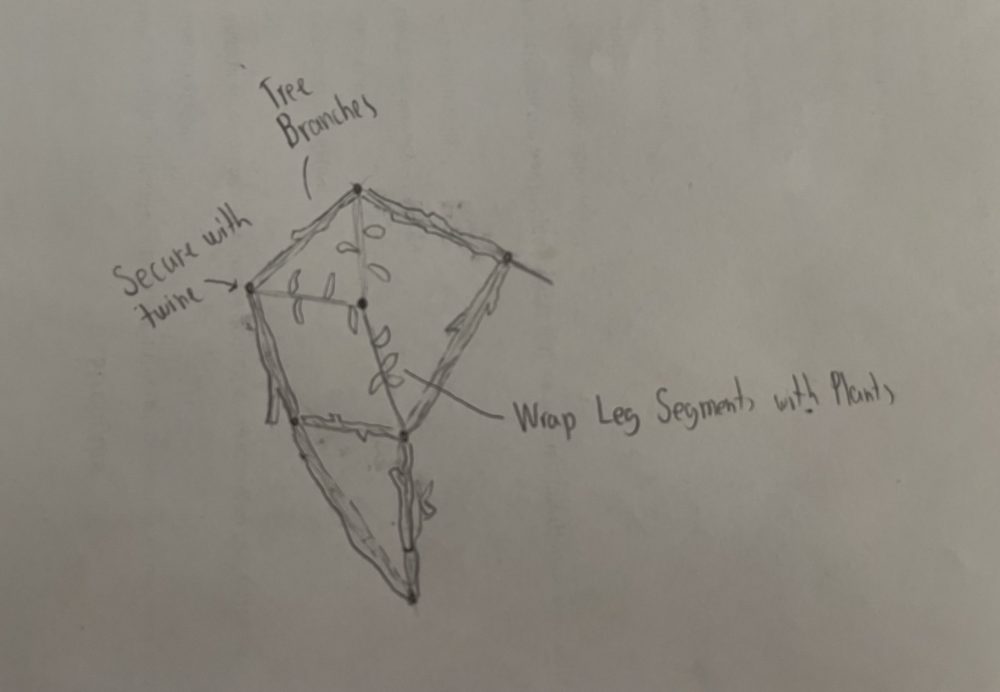 Tree
Branches
Secure with
twine
Wrap Leg Segments with Plants